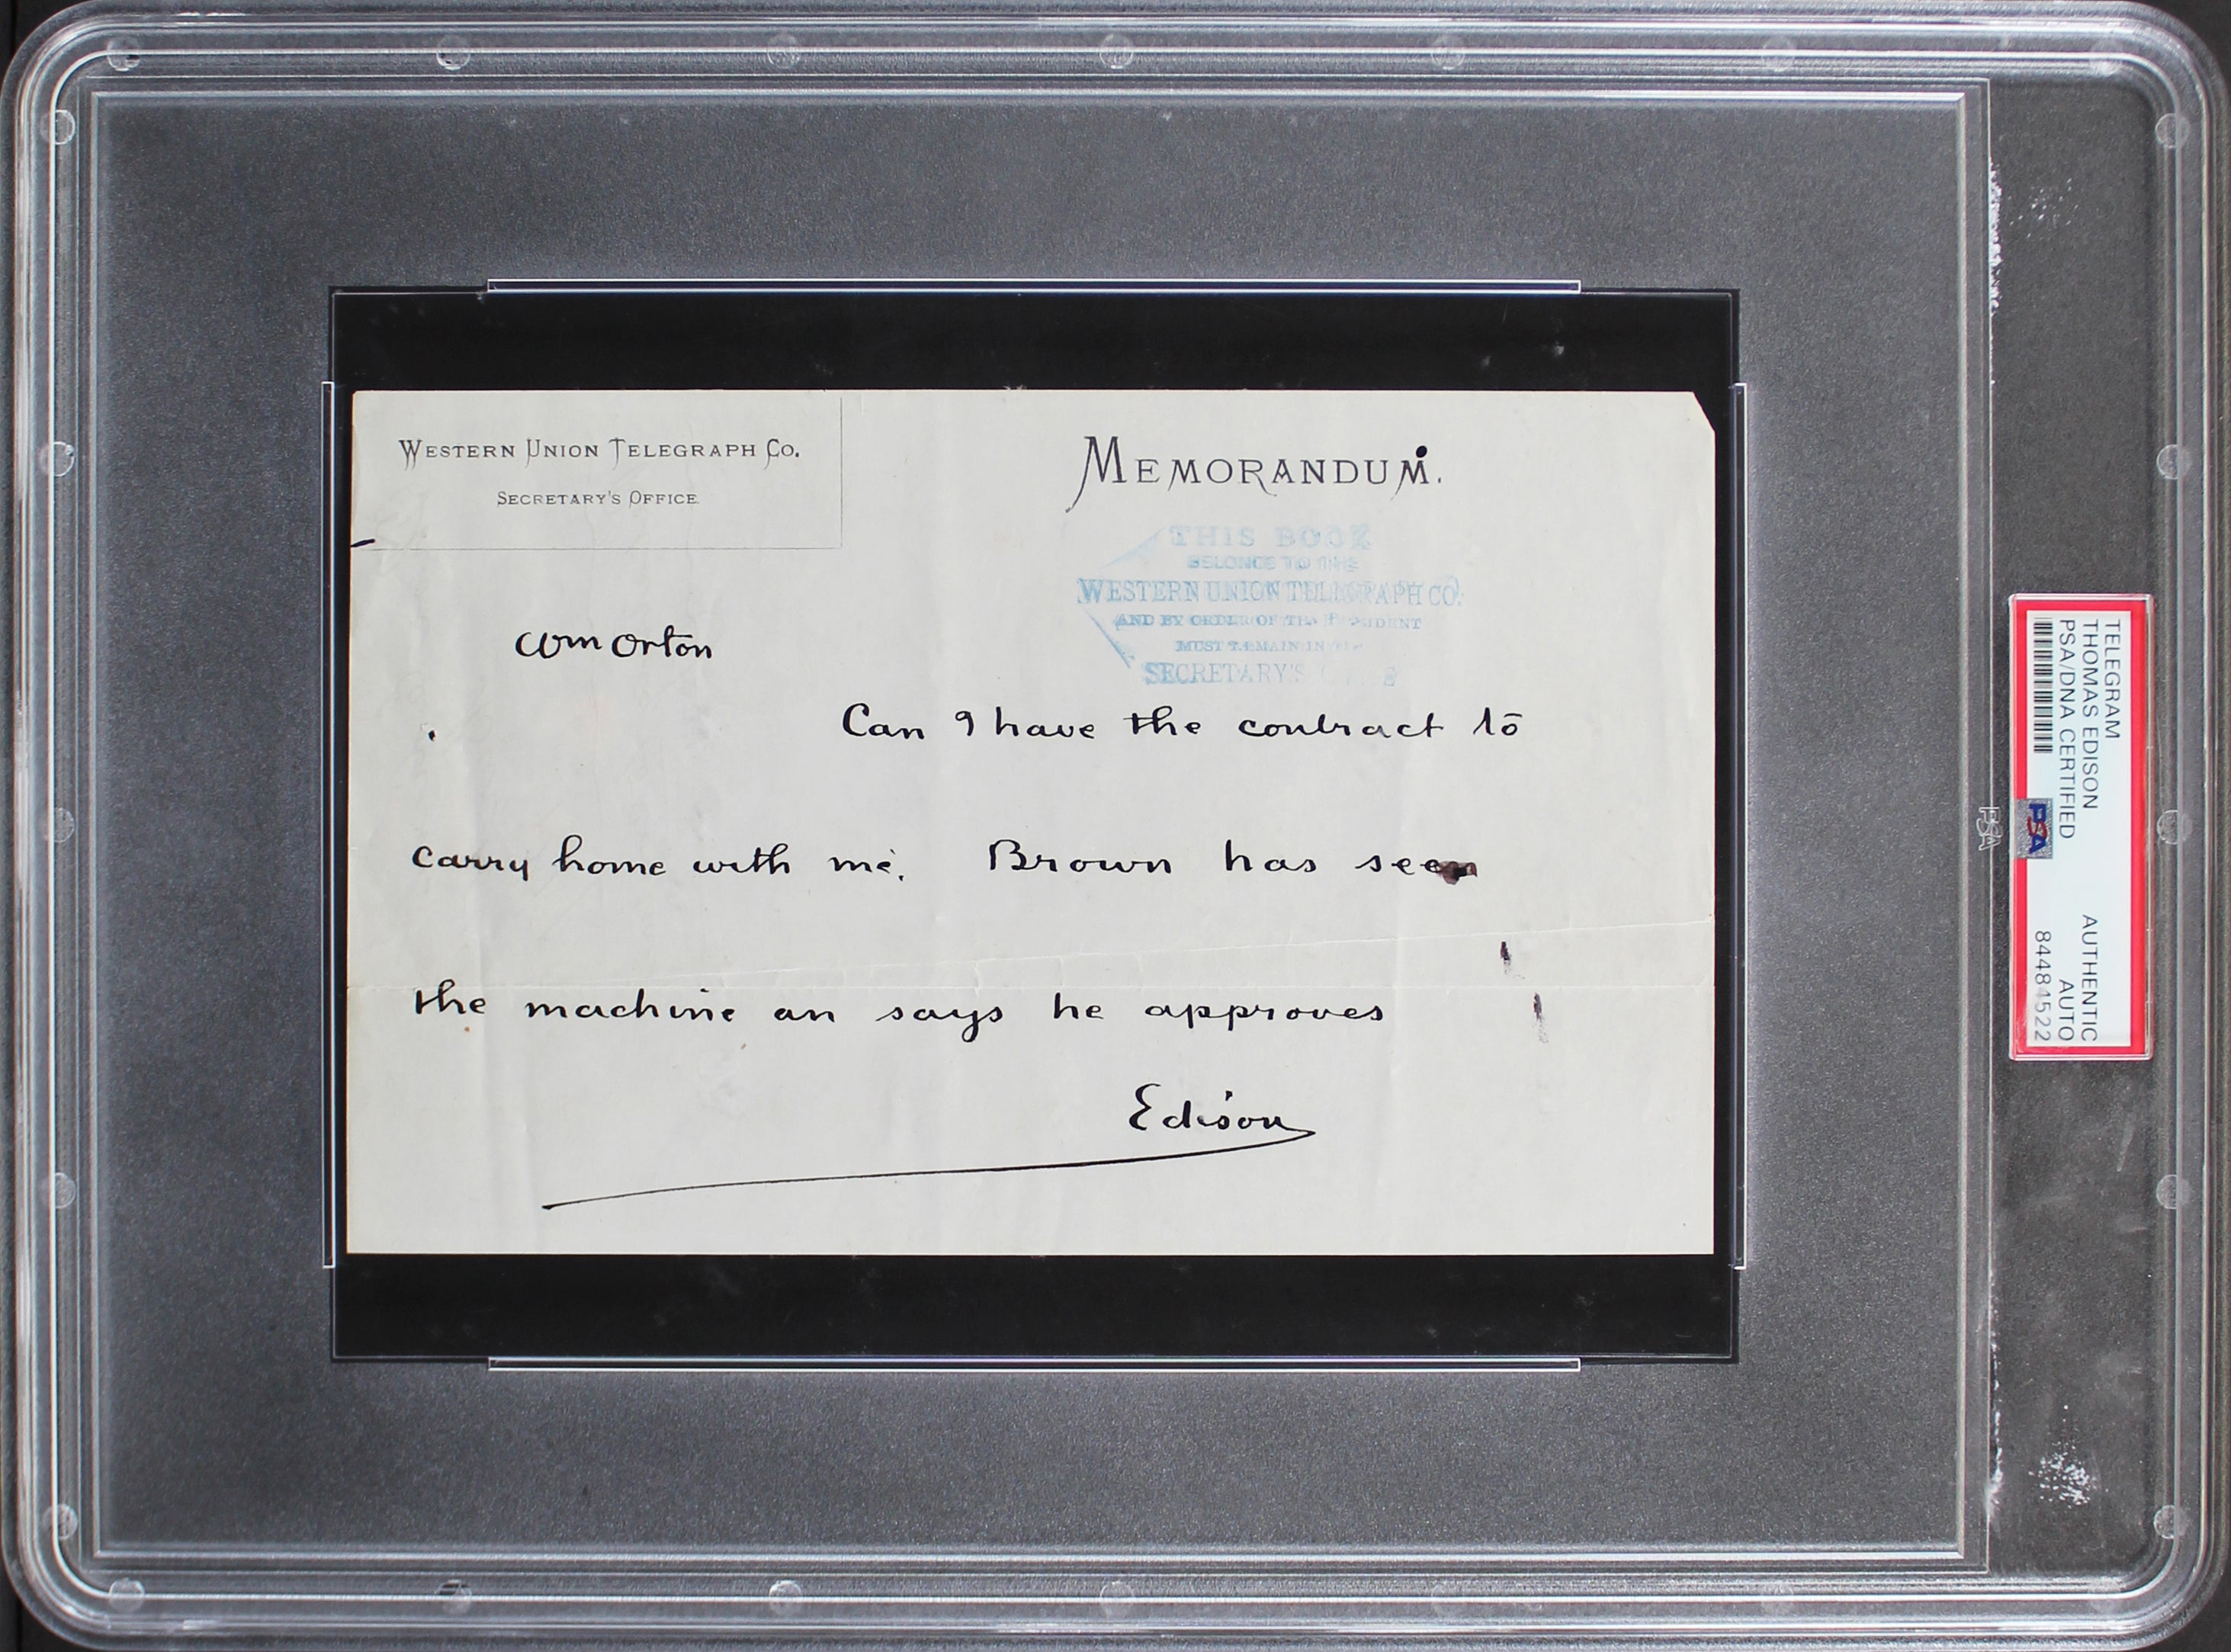 WESTERN UNION TELEGRAPH CO.
SECRETARY'S OFFICE
MEMORANDUM.
THIS BOOK
BELONGS TO THE
WESTERN UNION TELEGRAPH CO.
AND BY ORDER OF THE PRESIDENT
MUST REMAIN IN
SECRETARY'S
Wm Orton
Can I have the contract to
carry home with me. Brown has seen
the machine an says he approves
Edison
TELEGRAM
THOMAS EDISON AUTHENTIC
PSA/DNA CERTIFIED AUTO
84481522
PSA
PSA